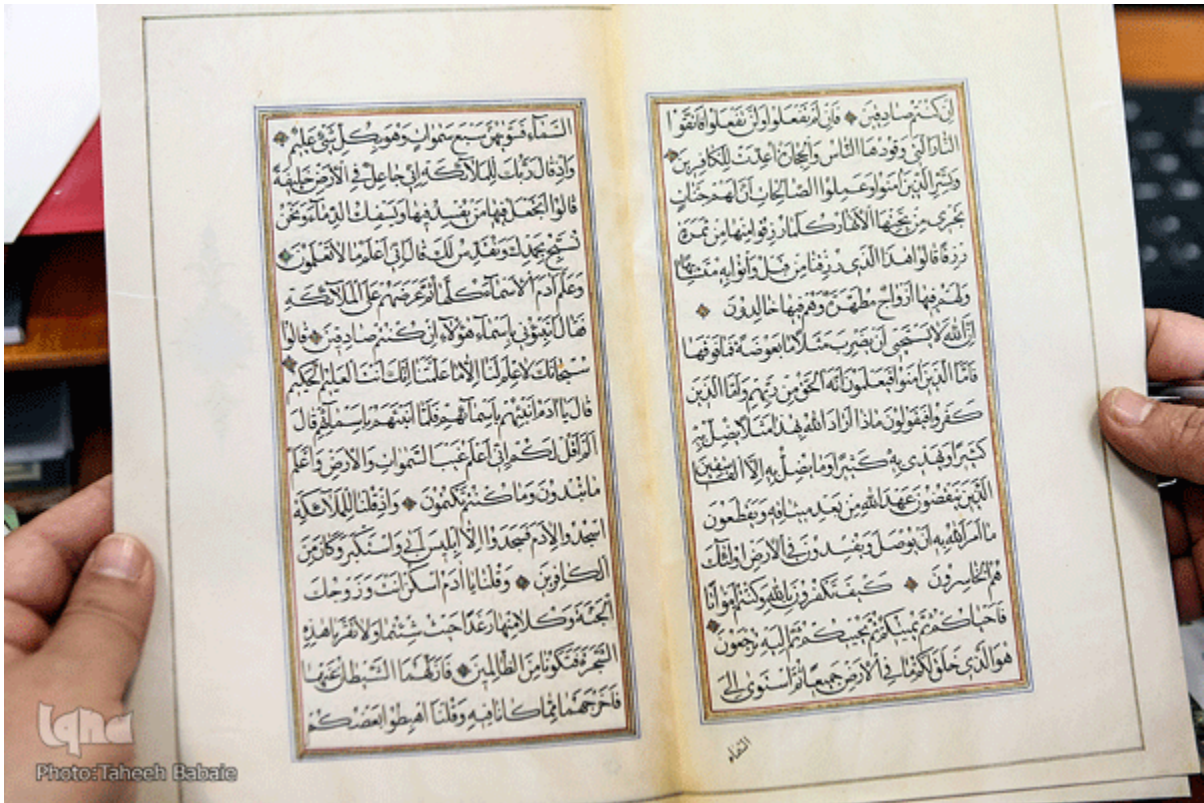 ان كُنْتُمْ صَادِقِينَ فَاِنْ لَمْ تَفْعَلُوا وَلَنْ تَفْعَلُوا فَاتَّقُوا
النَّارَ الَّتِي وَقُودُهَا النَّاسُ وَالْحِجَارَةُ اُعِدَّتْ لِلْكَافِرِينَ
وَبَشِّرِ الَّذِينَ اٰمَنُوا وَعَمِلُوا الصَّالِحَاتِ اَنَّ لَهُمْ جَنَّاتٍ
تَجْرِي مِنْ تَحْتِهَا الْاَنْهَارُ كُلَّمَا رُزِقُوا مِنْهَا مِنْ ثَمَرَةٍ
رِزْقًا قَالُوا هٰذَا الَّذِي رُزِقْنَا مِنْ قَبْلُ وَاُتُوا بِهِ مُتَشَابِهًا
وَلَهُمْ فِيهَا اَزْوَاجٌ مُطَهَّرَةٌ وَهُمْ فِيهَا خَالِدُونَ
اِنَّ اللّٰهَ لَا يَسْتَحْيِي اَنْ يَضْرِبَ مَثَلًا مَا بَعُوضَةً فَمَا فَوْقَهَا
فَاَمَّا الَّذِينَ اٰمَنُوا فَيَعْلَمُونَ اَنَّهُ الْحَقُّ مِنْ رَبِّهِمْ وَاَمَّا الَّذِينَ
كَفَرُوا فَيَقُولُونَ مَاذَا اَرَادَ اللّٰهُ بِهٰذَا مَثَلًا يُضِلُّ بِهِ
كَثِيرًا وَيَهْدِي بِهِ كَثِيرًا وَمَا يُضِلُّ بِهِ اِلَّا الْفَاسِقِينَ
الَّذِينَ يَنْقُضُونَ عَهْدَ اللّٰهِ مِنْ بَعْدِ مِيثَاقِهِ وَيَقْطَعُونَ
مَا اَمَرَ اللّٰهُ بِهِ اَنْ يُوصَلَ وَيُفْسِدُونَ فِي الْاَرْضِ اُولٰئِكَ
هُمُ الْخَاسِرُونَ كَيْفَ تَكْفُرُونَ بِاللّٰهِ وَكُنْتُمْ اَمْوَاتًا
فَاَحْيَاكُمْ ثُمَّ يُمِيتُكُمْ ثُمَّ يُحْيِيكُمْ ثُمَّ اِلَيْهِ تُرْجَعُونَ
هُوَ الَّذِي خَلَقَ لَكُمْ مَا فِي الْاَرْضِ جَمِيعًا ثُمَّ اسْتَوٰى اِلَى
السَّمَاءِ
السَّمَاءِ فَسَوّٰيهُنَّ سَبْعَ سَمٰوَاتٍ وَهُوَ بِكُلِّ شَيْءٍ عَلِيمٌ
وَاِذْ قَالَ رَبُّكَ لِلْمَلَائِكَةِ اِنِّي جَاعِلٌ فِي الْاَرْضِ خَلِيفَةً
قَالُوا اَتَجْعَلُ فِيهَا مَنْ يُفْسِدُ فِيهَا وَيَسْفِكُ الدِّمَاءَ وَنَحْنُ
نُسَبِّحُ بِحَمْدِكَ وَنُقَدِّسُ لَكَ قَالَ اِنِّي اَعْلَمُ مَا لَا تَعْلَمُونَ
وَعَلَّمَ اٰدَمَ الْاَسْمَاءَ كُلَّهَا ثُمَّ عَرَضَهُمْ عَلَى الْمَلَائِكَةِ
فَقَالَ اَنْبِئُونِي بِاَسْمَاءِ هٰؤُلَاءِ اِنْ كُنْتُمْ صَادِقِينَ قَالُوا
سُبْحَانَكَ لَا عِلْمَ لَنَا اِلَّا مَا عَلَّمْتَنَا اِنَّكَ اَنْتَ الْعَلِيمُ الْحَكِيمُ
قَالَ يَا اٰدَمُ اَنْبِئْهُمْ بِاَسْمَائِهِمْ فَلَمَّا اَنْبَئَهُمْ بِاَسْمَائِهِمْ قَالَ
اَلَمْ اَقُلْ لَكُمْ اِنِّي اَعْلَمُ غَيْبَ السَّمٰوَاتِ وَالْاَرْضِ وَاَعْلَمُ
مَا تُبْدُونَ وَمَا كُنْتُمْ تَكْتُمُونَ وَاِذْ قُلْنَا لِلْمَلَائِكَةِ
اسْجُدُوا لِاٰدَمَ فَسَجَدُوا اِلَّا اِبْلِيسَ اَبٰى وَاسْتَكْبَرَ وَكَانَ مِنَ
الْكَافِرِينَ وَقُلْنَا يَا اٰدَمُ اسْكُنْ اَنْتَ وَزَوْجُكَ
الْجَنَّةَ وَكُلَا مِنْهَا رَغَدًا حَيْثُ شِئْتُمَا وَلَا تَقْرَبَا هٰذِهِ
الشَّجَرَةَ فَتَكُونَا مِنَ الظَّالِمِينَ فَاَزَلَّهُمَا الشَّيْطَانُ عَنْهَا
فَاَخْرَجَهُمَا مِمَّا كَانَا فِيهِ وَقُلْنَا اهْبِطُوا بَعْضُكُمْ
Iqna
Photo:Taheeh Babaie